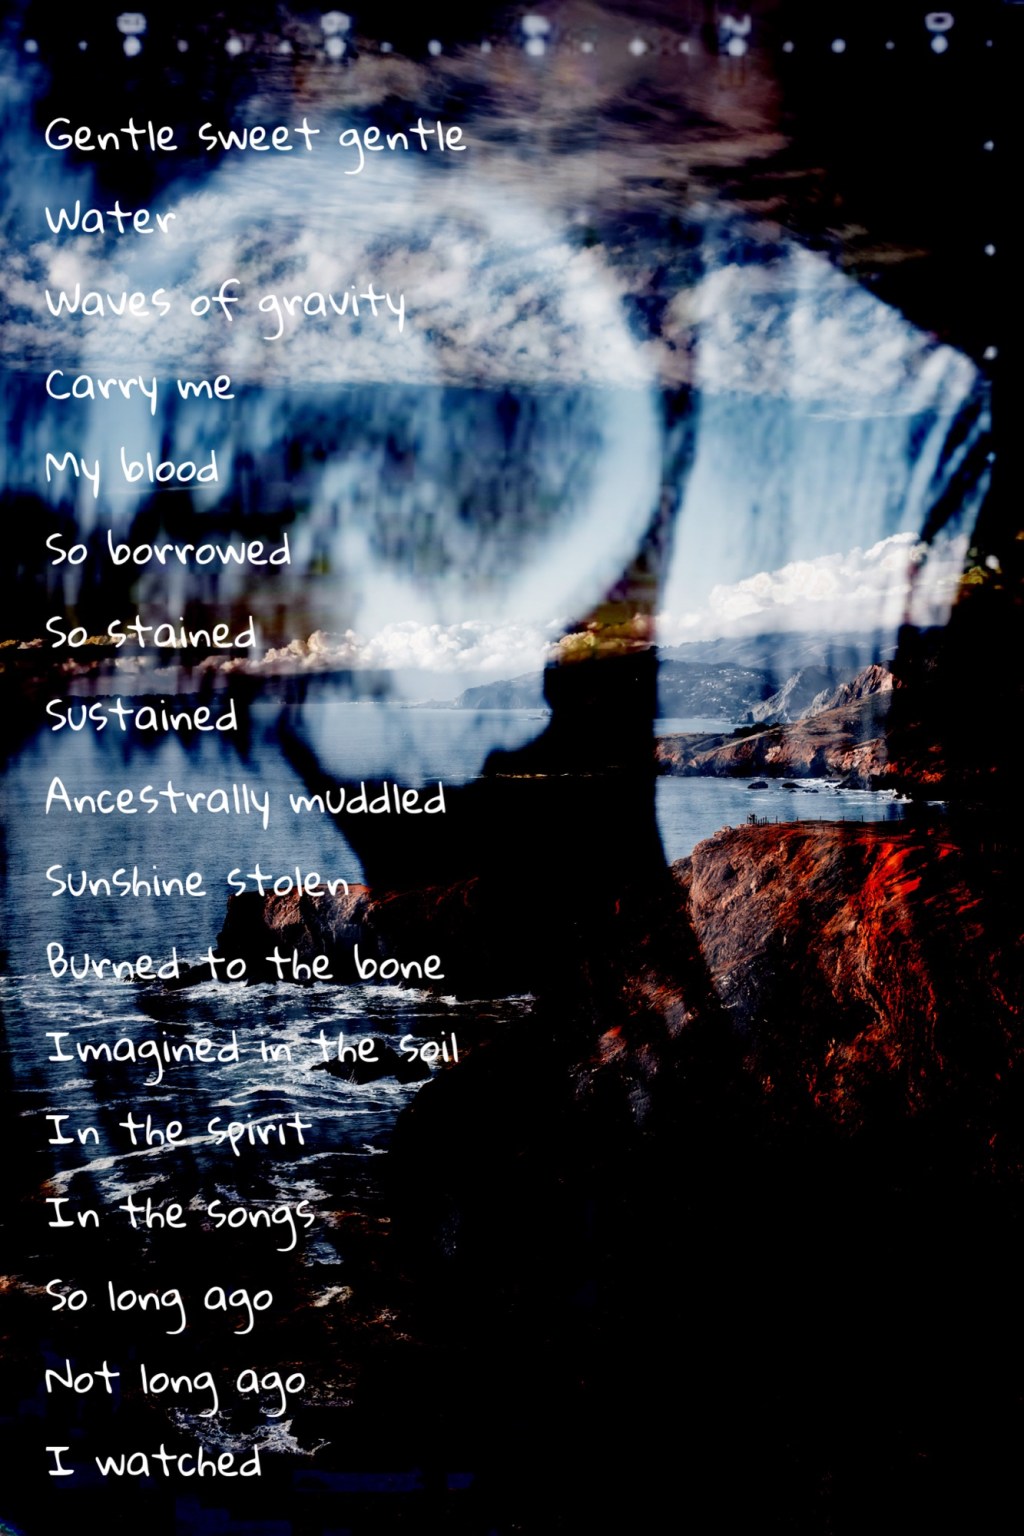 Gentle sweet gentle
Water
Waves of gravity
Carry me
My blood
So borrowed
So stained
Sustained
Ancestrally muddled
Sunshine stolen
Burned to the bone
Imagined in the soil
In the spirit
In the songs
So long ago
Not long ago
I watched